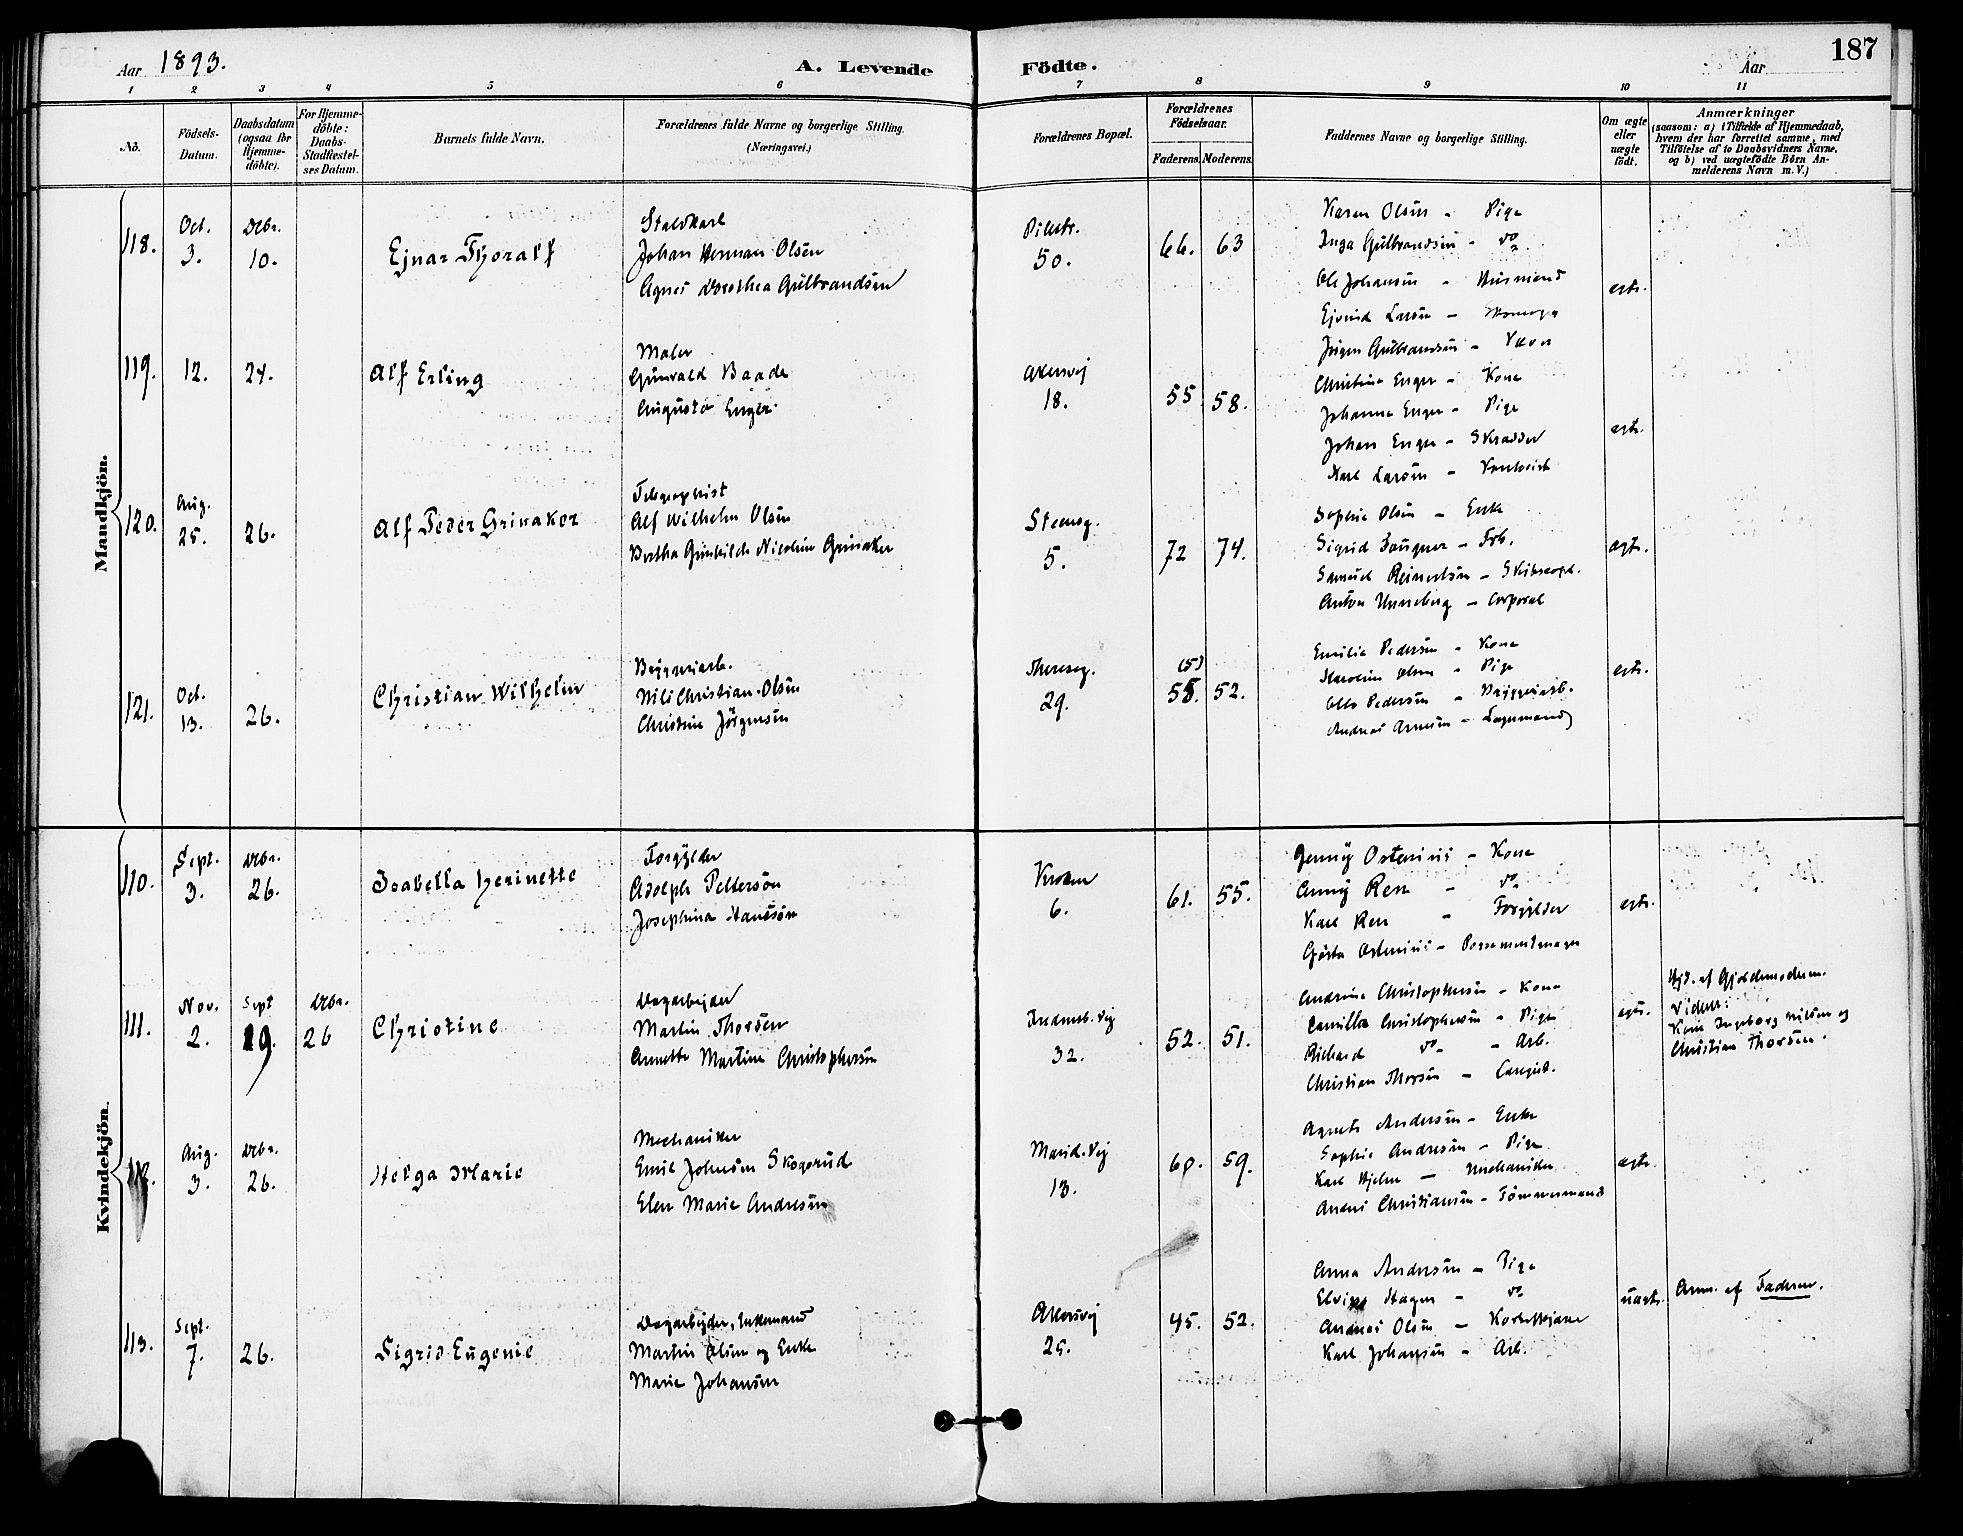 Aar 1893.
A. Levende Födte.
Aar
187
1 2 3 4 5 6 7 8 9 10 11
No.
Födsels-Datum.
Daabsdatum (ogsaa for Hjemme-döbte).
For Hjemme-döbte: Daabs-Stadfæstel-ses Datum.
Barnets fulde Navn.
Forældrenes fulde Navne og borgerlige Stilling. (Næringsvei.)
Forældrenes Bopæl.
Forældrenes Födselsaar.
Faderens. Moderens.
Faddernes Navne og borgerlige Stilling.
Om ægte eller uægte födt.
Anmærkninger (saasom: a) i Tilfælde af Hjemmedaab, hvem der har forrettet samme, med Tilföielse af to Daabsvidners Navne, og b) ved uægtefödte Börn An-melderens Navn m. V.)
Mandkjön.
118. Oct. 3. Dcbr. 10.
Ejnar Thoralf
Staldkarl
Johan Herman Olsen
Agnes Dorothea Gulbrandsen
Pilestr. 50.
66. 63
Karen Olsen - Pige
Inga Gulbrandsen - do
Ole Johansen - Husmand
Ejvind Larsen -
ægte.
119. 12. 24.
Alf Erling
Maler
Gunvald Baade
Augusta Enger.
Akersvej 18.
55 58.
Jörgen Gulbrandsen -
Christine Enger - Kone
Johanne Enger - Pige
Johan Enger - Skrædder
Karl Larsen -
ægte.
120. Aug. 25. 26.
Alf Peder Grinaker
Telegraphist
Alf Wilhelm Olsen
Bertha Gunhilde Nicoline Grinaker
Steensg. 5.
72 74.
Sophie Olsen - Enke
Sigrid - Frk.
Samuel Reinertsen -
Anton Unneberg - Corporal
ægte.
121. Oct. 13. 26.
Christian Wilhelm
Bryggeriarb.
Nils Christian Olsen
Christine Jörgensen
Theresesg. 29.
(5)
55. 52.
Emilie Pedersen - Kone
Karoline Olsen - Pige
Otto Pedersen - Bryggeriarb.
Andreas Arnesen - Lagermand
ægte.
Kvindekjön.
110. Sept. 3. Dcbr. 26.
Isabella Herinette
Forgylder
Adolph Pettersön
Josephina Hansson
Kroken 6.
61. 55.
Jenny Ostenius - Kone
Anny Ren - do
Karl Ren - Forgylder
Gösta Ostenius - Possementmager
ægte.
111. Nov. 2. Sept 19. Dcbr. 26
Christine
Dagarbejder
Martin Thorsen
Annette Martine Christophersen
32.
52. 51.
Andrine Christophersen - Kone
Camilla Christophersen - Pige
Richard do - Arb.
Christian Thorsen -
ægte.
Hjd. af Gjordemoderen.
Vidner:
Kone Ingeborg Nilsen og
Christian Thorsen.
112. Aug. 3. Dcbr. 26.
Helga Marie
Mechaniker
Emil Johnsen Skogerud
Elen Marie Andresen
Marid. Vej 13.
60. 59.
Agnete Andersen - Enke
Sophie Andresen - Pige
Karl Hjelm - Mechaniker
Anders Christiansen - Tömmermand
ægte.
113. Sept. 7. 26.
Sigrid Eugenie
Dagarbejder, Enkemand
Martin Olsen og Enke
Marie Johansen
Akersvej 26.
45. 52.
Anna Andersen - Pige
Hagen - do
Andreas Olsen -
Karl Johansen - Arb.
uægte.
Anm. af Faderen.